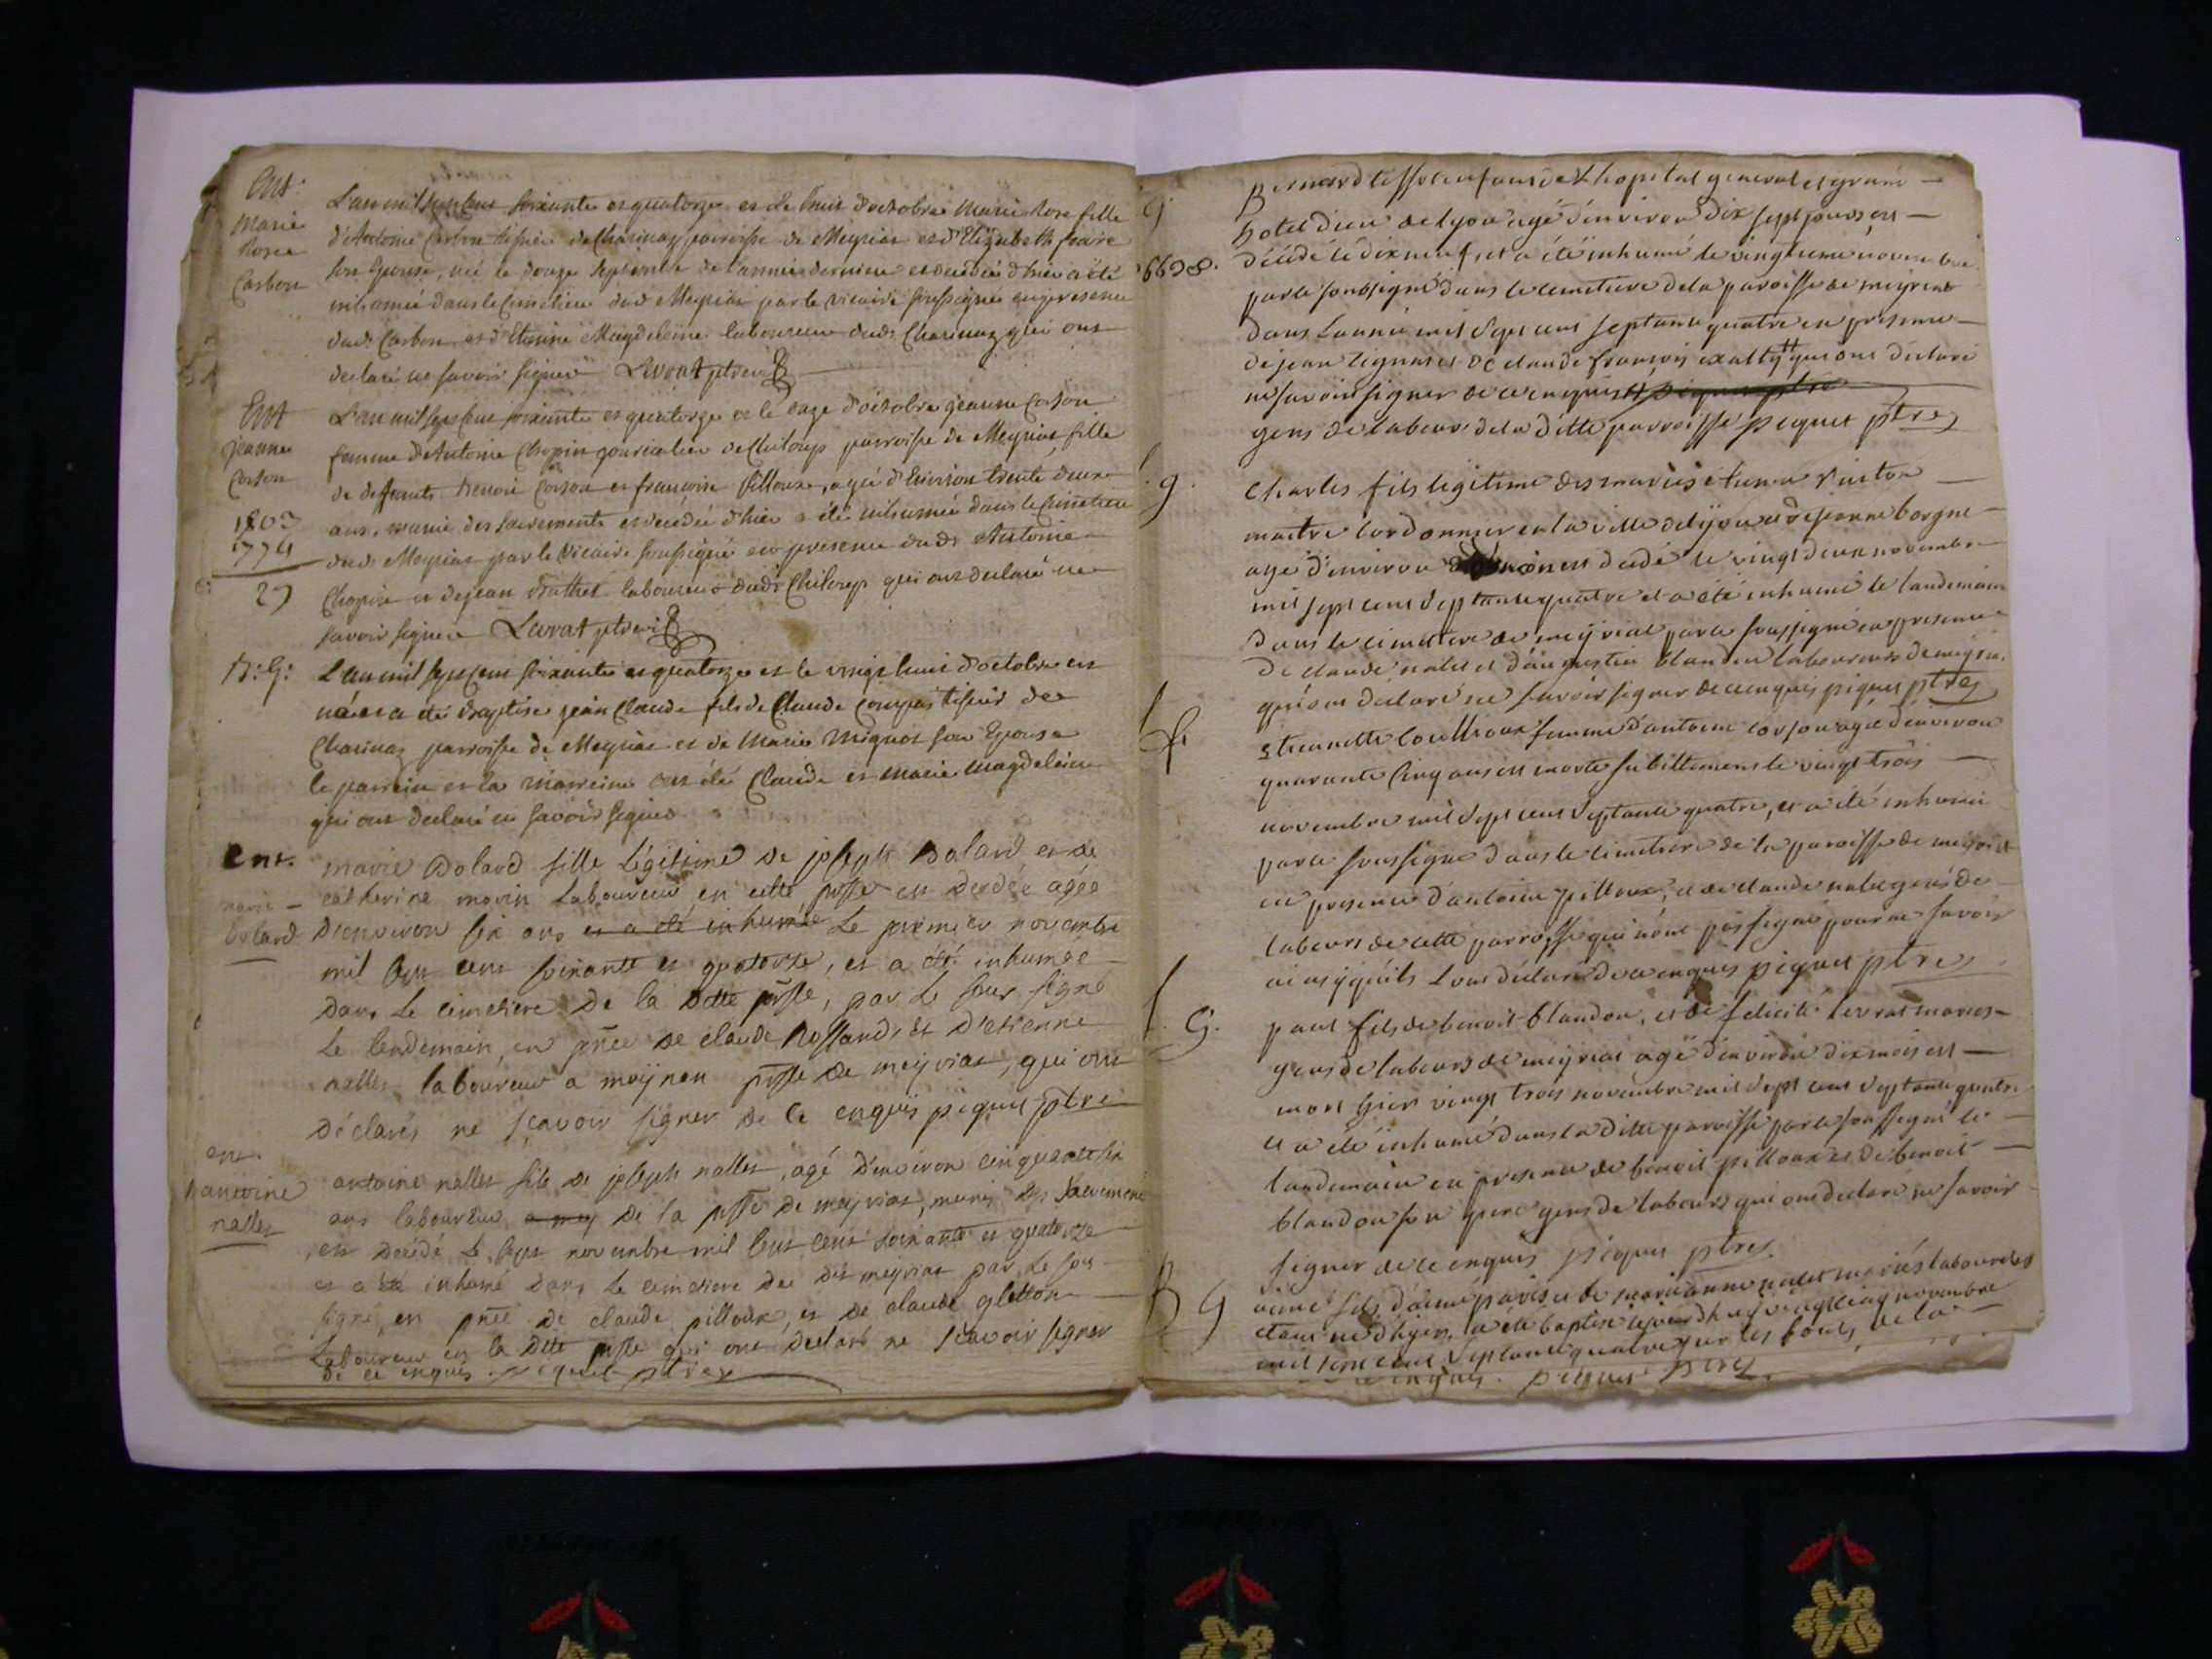 Ent.
Marie
Rose
Carbon
L'an mil sept cent soixante et quatorze et le huit d'octobre Marie Rose fille
d'Antoine Carbon tissier de Charinaz parroisse de Meyriat et d'Elizabeth
son Epouse, née le douze septembre de l'année derniere et decedée d'hier a été
inhumée dans le cimetiere dud Meyriat par le vicaire soussigné en presence
dud. Carbon et d'Etienne Magdeleine laboureur dud. Charinaz qui ont
declaré ne savoir signer Levrat ptre vic
Ent
jeanne
Corson
1803
1774
29
L'an mil sept cent soixante et quatorze et le onze d'octobre jeanne Corson
femme d'Antoine Chopin de Chiloup parroisse de Meyriat, fille
de deffunts Benoit Corson et francoise Pilloux, agée d'Environ trente deux
ans, munie des sacrements et decedée d'hier a été inhumée dans le Cimetiere
dud. Meyriat par le vicaire soussigné en presence dudt Antoine
Chopin et de jean laboureur dudt Chiloup qui ont declaré ne
savoir signer Levrat ptre vic
B: G:
L'an mil sept cent soixante et quatorze et le vingt huit d'octobre est
né et a été Baptisé jean Claude fils de Claude tissier de
Charinaz parroisse de Meyriat et de Marie Mignot son Epouse
le parrein et la marreine ont été Claude et Marie Magdeleine
qui ont declaré ne savoir signer
Ent.
marie
bolard
marie Bolard fille légitime de joseph Bolard et de
catherine morin Laboureur en cette psse est decdée agée
D'environ six ans et a été inhumée Le premier novembre
mil sept cent soixante et quatorze, et a été inhumée
dans Le cimetiere de la ditte psse, par Le sous signé
Le lendemain, en pñce de claude Rolland et D'etienne
nallet laboureur a meyriat psse de meyriat, qui ont
déclarés ne sçavoir signer de ce enquis piquet ptre
ent.
antoine
nallet
antoine nallet fils de joseph nallet, agé D'environ cinquante six
ans laboureur a mey de la psse de meyriat, munis des sacrements
est decédé Le sept novembre mil sept cent soixante et quatorze
et a été inhumé dans Le cimetiere du dit meyriat par Le sous
signé, en pñce de claude pilloux, et de claude gletton
Laboureur en la ditte psse qui ont declaré ne sçavoir signer
de ce enquis. piquet ptre
G.
6638.
Bernard enfant de L'hopital general et grand
hotel Dieu de lyon agé d'environ dix sept jours est
décédé le dix neuf, et a été inhumé le vingtieme novembre
par le soussigné dans le cimetiere de la paroisse de meyriat
dans L'année mil sept cent septante quatre en presence
de jean et de claude françois qui ont declaré
ne savoir signer de ce enquis piquet ptre
gens de labeurs de la ditte parroisse piquet ptre
g.
Charles fils légitime des mariés
maitre Cordonnier en la ville de lyon et de jeanne borgne
agé d'environ mois est decedé le vingt deux novembre
mil sept cent septante quatre et a été inhumé le landemain
dans le cimetiere de meyriat par le soussigné en presence
de claude nalet et d'augustin blandon laboureurs de meyriat
qui ont declaré ne savoir signer de ce enquis piquet ptre
f.
Etiennette femme d'antoine corson agée d'environ
quarante cinq ans est morte subittement le vingt trois
novembre mil sept cent septante quatre, et a été inhumée
par le soussigné dans le cimetiere de la paroisse de meyriat
en presence d'antoine pilloux, et de claude nalet gens de
labeurs de cette parroisse qui n'ont pas signé pour ne savoir
ainsy qu'ils L'ont déclaré de ce enquis piquet ptre
G.
paul fils de benoit blandon, et de felicité levrat mariés
gens de labeurs de meyriat agé d'environ dix mois est
mort hier vingt trois novembre mil sept cent septante quatre
et a été inhumé dans la ditte paroisse par le soussigné le
landemain en presence de benoit pilloux et de benoit
blandon son pere gens de labeurs qui ont declaré ne savoir
signer de ce enquis piquet ptre.
B G
aimé fils d'aimé paris et de marianne nalet mariés laboureurs
étant né d'hyer, a été baptisé ajourdhuy vingt cinq novembre
mil sept cent septante quatre sur les fonts de la
enquis. piquet ptre